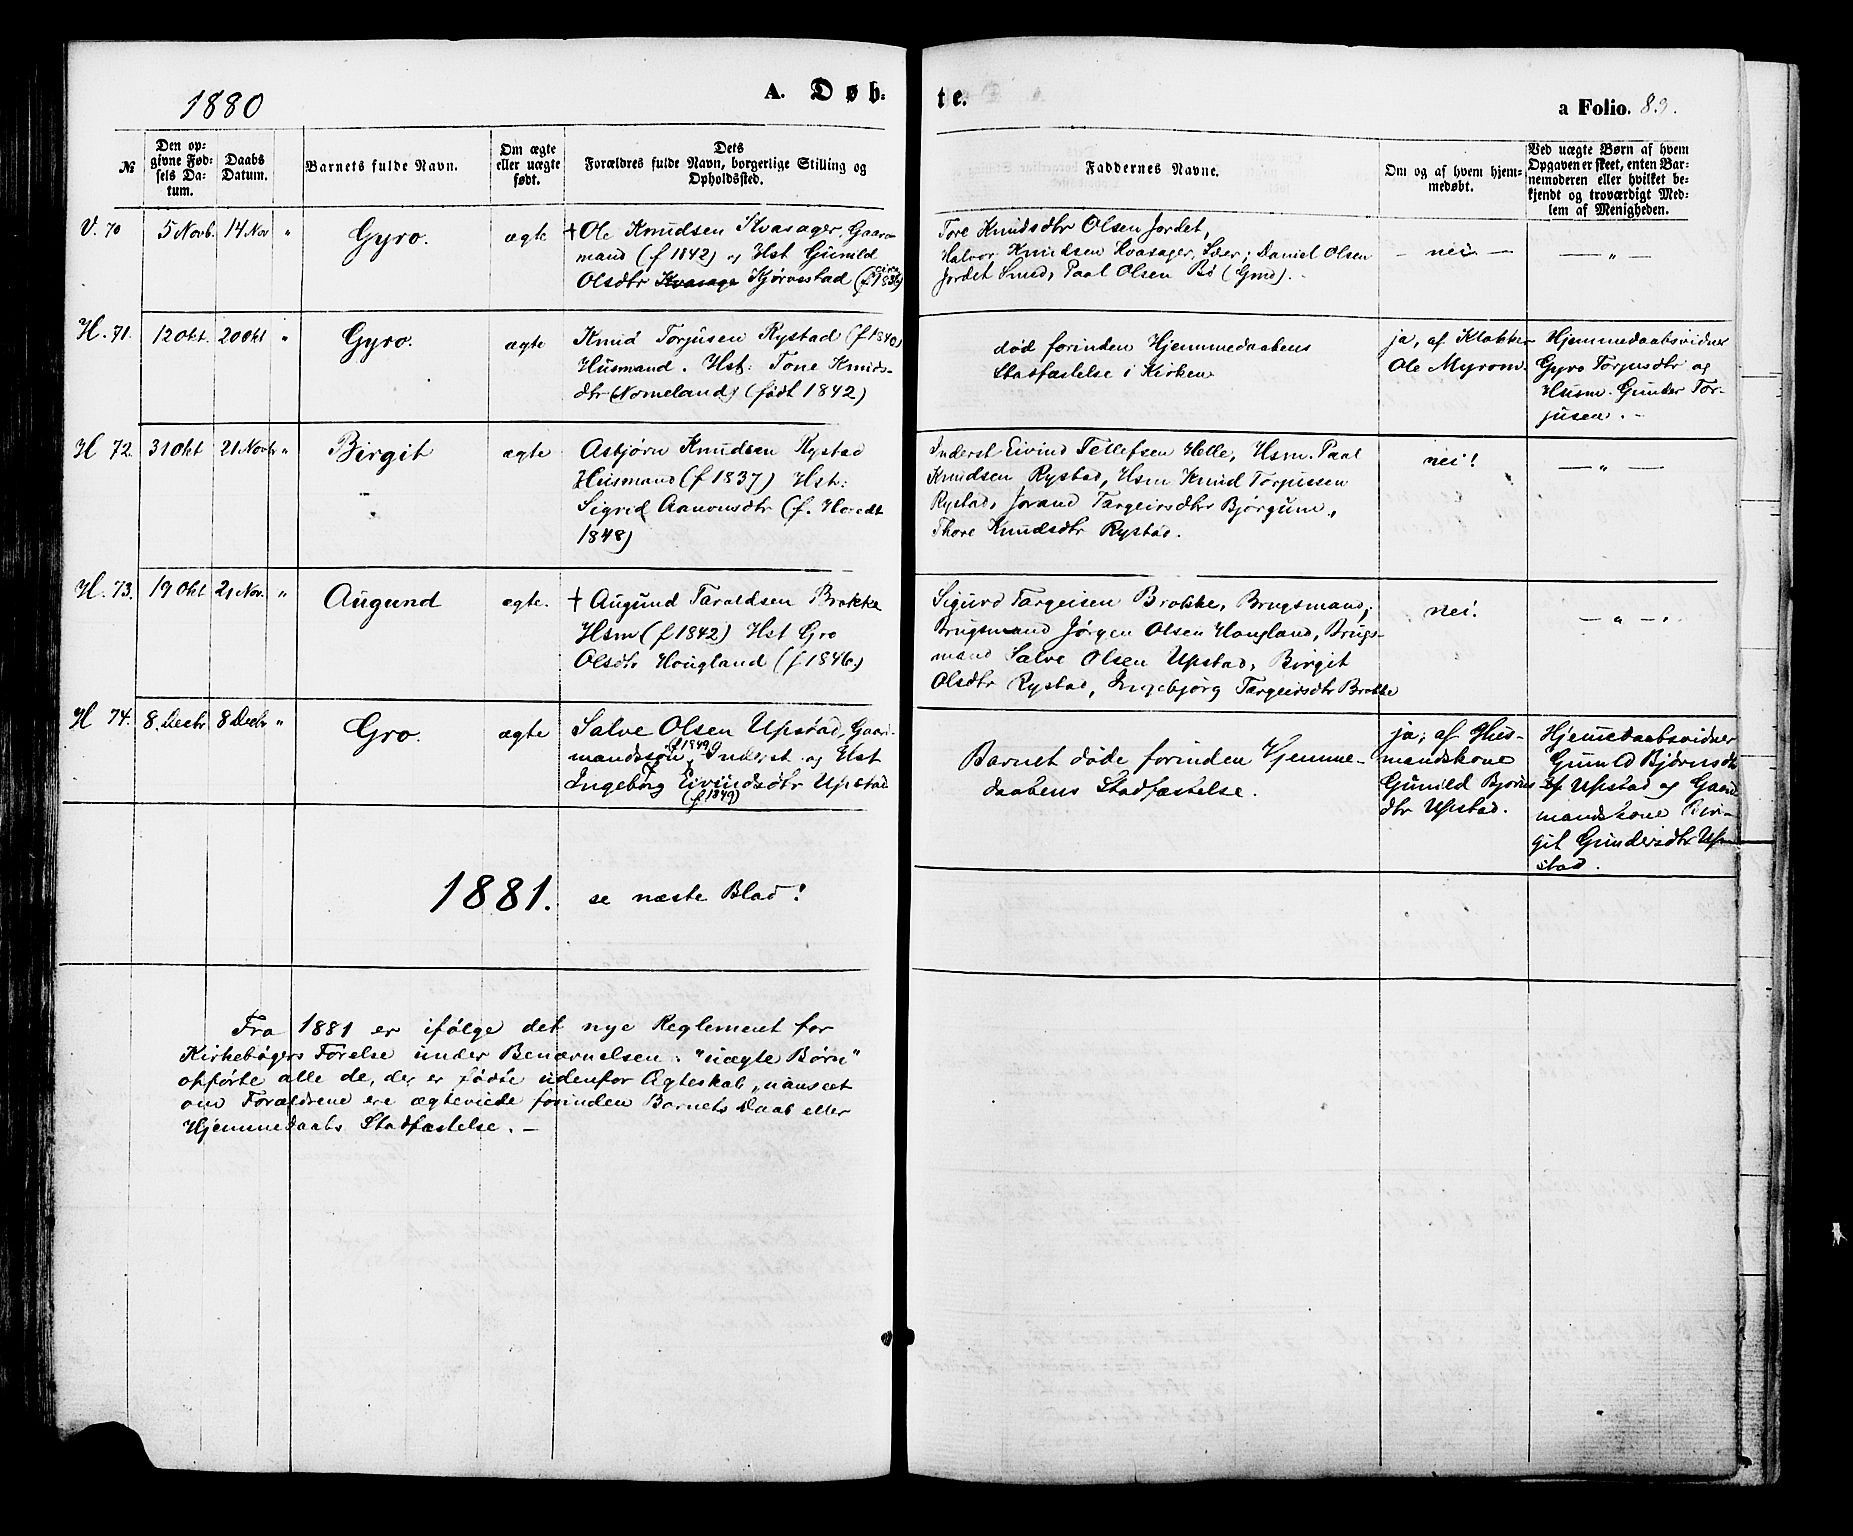 1880
A. Døb-
te.
a Folio. 83.
№
Den op-
givne Fød-
sels Da-
tum.
Daabs
Datum.
Barnets fulde Navn.
Om ægte
eller uægte
født.
Dets
Forældres fulde Navn, borgerlige Stilling og
Opholdssted.
Faddernes Navne.
Om og af hvem hjem-
medøbt.
Ved uægte Børn af hvem
Opgaven er skeet, enten Bar-
nemoderen eller hvilket be-
kjendt og troværdigt Med-
lem af Menigheden.
V. 70
5 Novb.
14 Nov
"
Gyro.
ægte
† Ole Knudsen Kvasager, Gaard-
mand (f 1842) og Hst Gunild
Olsdtr Kvasage Kjørvestad (f circa 1836)
Tore Knudsdtr Olsen Jordet,
Halvor Knudsen Kvasager, Sæer; Daniel Olsen
Jordet Smed, Paal Olsen Bø (Gmd). -
- nei -
— " —
H. 71.
12 Okt.
20 Okt
"
Gyro.
ægte
Knud Torjusen Rystad (f 1840)
Husmand. Hst: Tone Knuds-
dtr (Nomeland) (født 1842)
død forinden Hjemmedaabens
Stadfæstelse i Kirken
ja, af Klokker
Ole Myrom.
Hjemmedaabsvidner
Gyro Torjusdtr og
Husm. Gunder Tor-
jusen. -
H 72.
31 Okt
21 Novbr
"
Birgit
ægte
Asbjørn Knudsen Rystad
Husmand (f 1837) Hst:
Sigrid Aanonsdtr (f. Horedt
1848)
Inderst Eivind Tellefsen Helle, Hsm. Paal
Knudsen Rystad, Hsm Knud Torjussen
Rystad, Jorand Targeirsdtr Bjørgum,
Thore Knudsdtr Rystad.
nei!
— " —
H. 73.
19 Okt
21 Nov.
"
Augund
ægte.
† Augund Taraldsen Brokke
Hsm (f 1842) Hst Gro
Olsdtr Hougland (f 1846)
Sigurd Targeisen Brokke, Brugsmand;
Brugsmand Jørgen Olsen Hougland, Brugs-
mand Salve Olsen Upstad, Birgit
Olsdtr Rystad, Ingebjørg Targeirsdtr Brokke
nei.
- " - .
H 74.
8. Decbr
8 Decbr
"
Gro.
ægte
Salve Olsen Upstad, Gaard-
mandssøn (f 1849), Inderst og Hst
Ingeborg Eivindsdtr Upstad
(f 1849)
Barnet døde forinden Hjemme-
daabens Stadfæstelse.
ja; af Hus-
mandskone
Gunild Bjørns-
dtr Upstad.
Hjemmedaabsvidner
Gunild Bjørnsdtr
af Upstad og Gaard-
mandskone Bir-
git Gundersdtr Up-
stad.
1881. se næste Blad!
Fra 1881 er ifølge det nye Reglement for
Kirkebøgers Førelse under Benævnelsen: "uægte Børn"
opførte alle de, der er fødte udenfor Ægteskab, uanseet
om Forældrene ere ægteviede forinden Barnets Daab eller
Hjemmedaabs Stadfæstelse. -